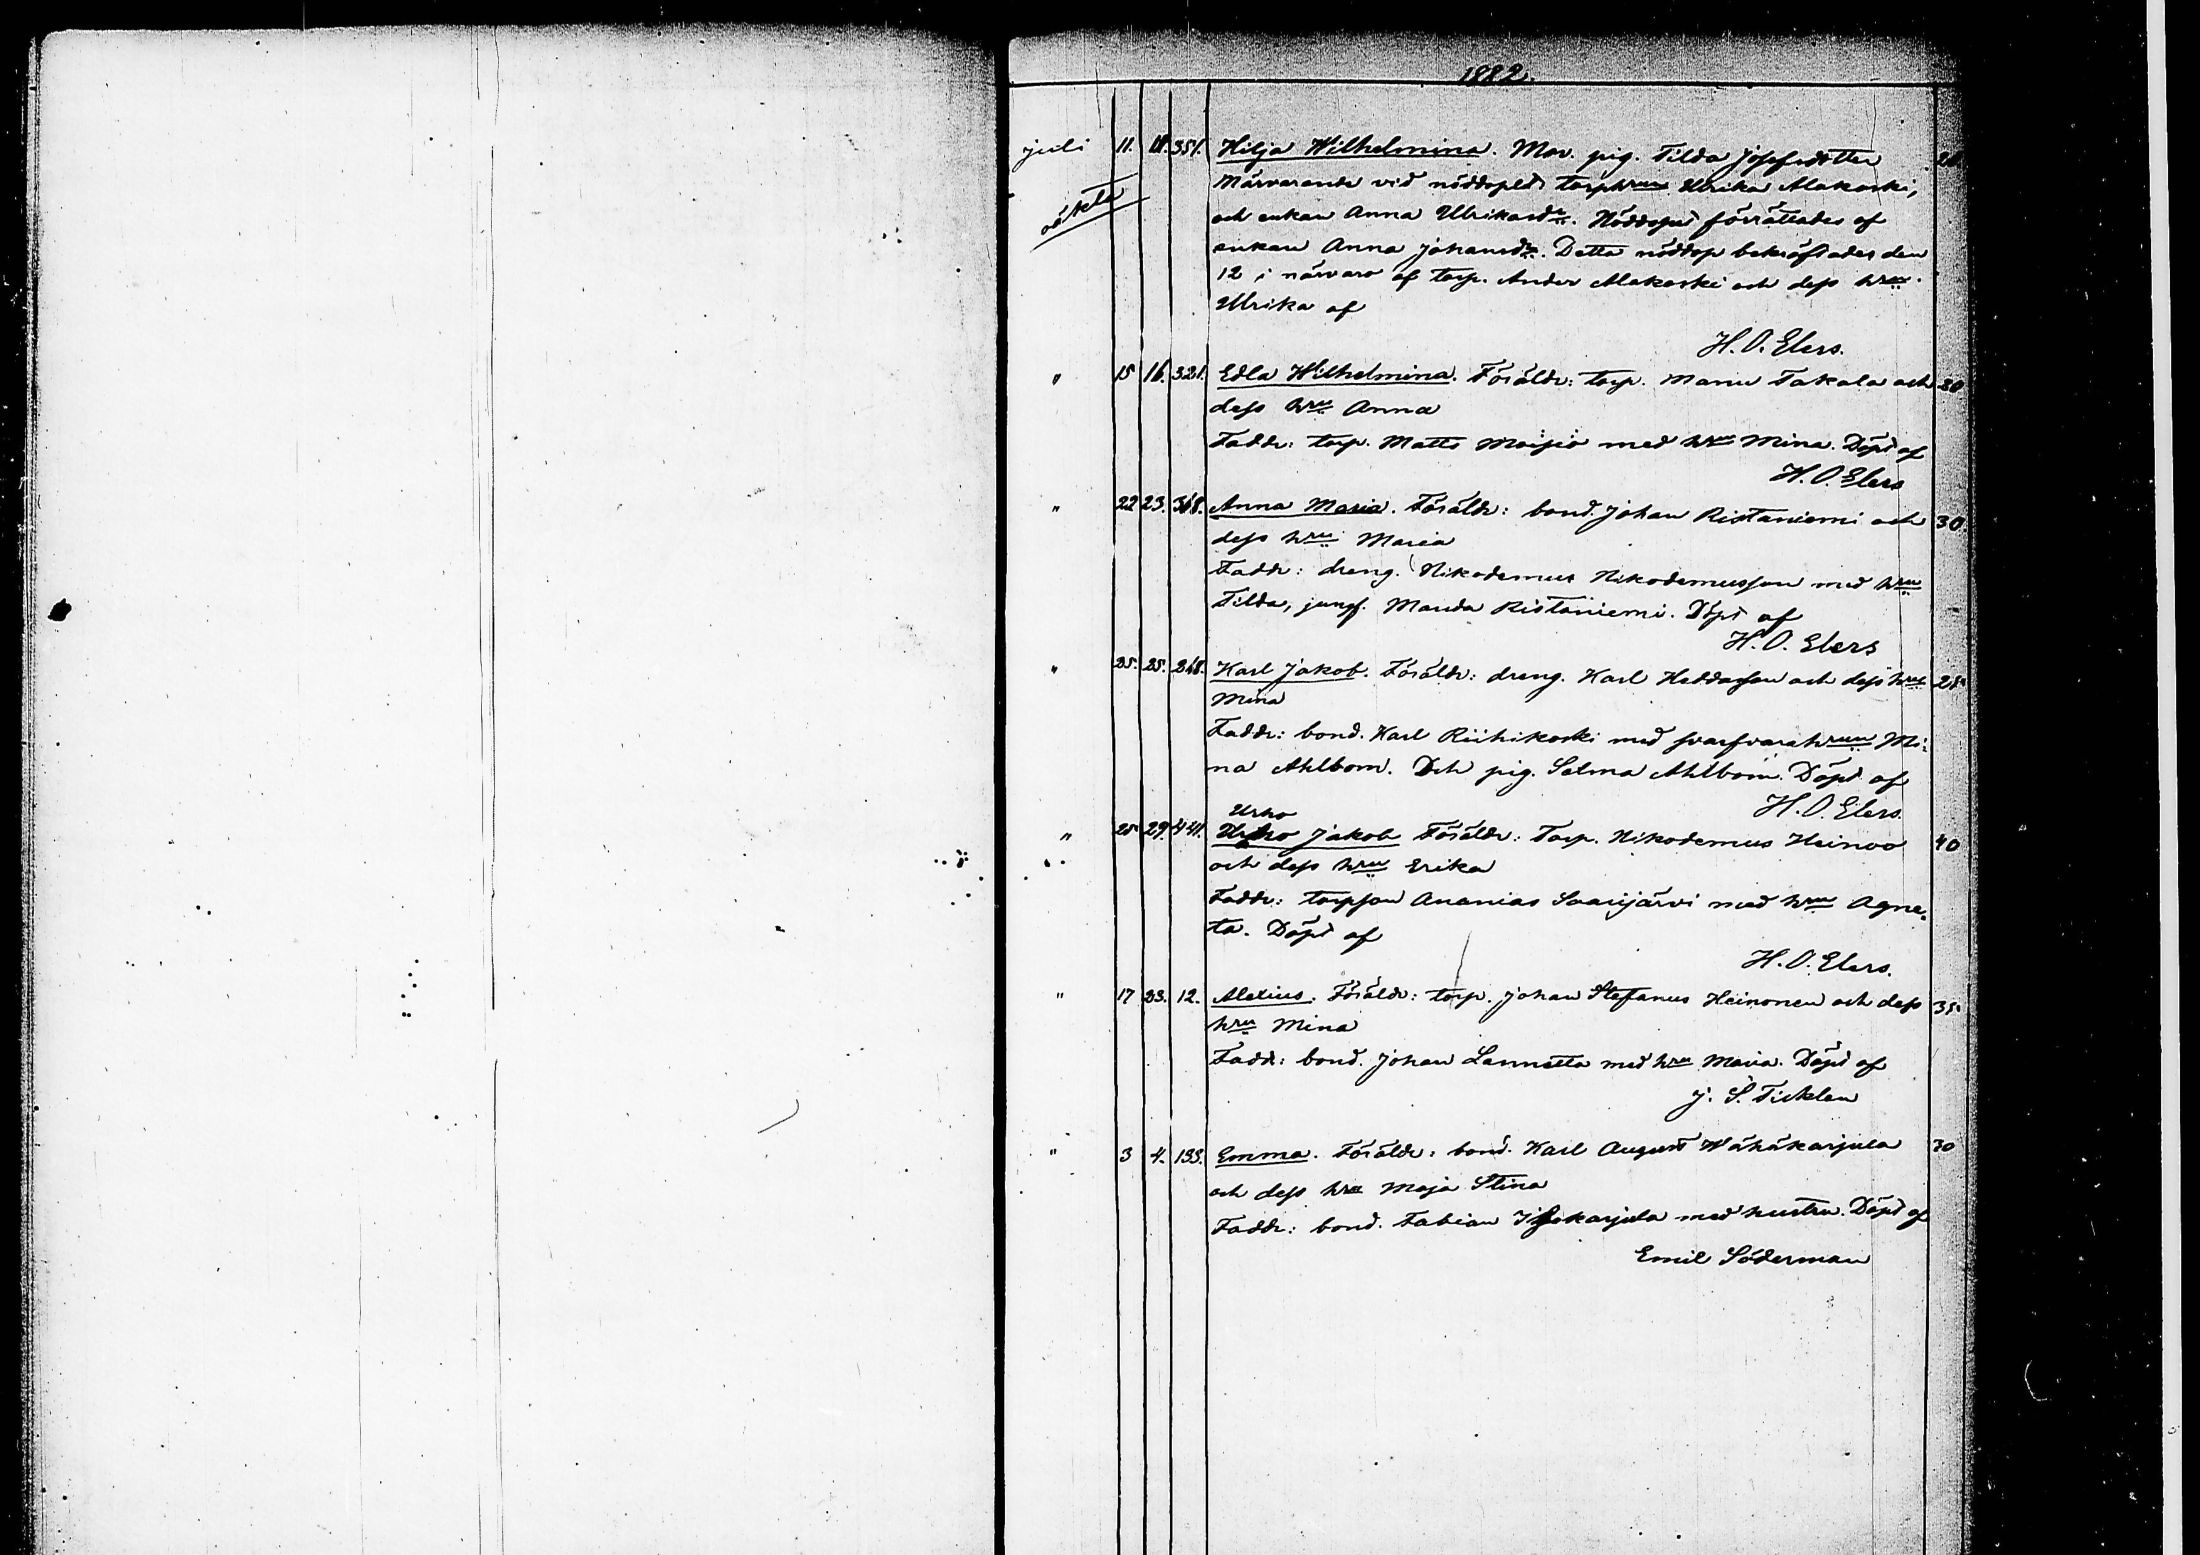 1882.
juli 11. 11. 351. Hilja Wilhelmina. Mor. pig. Tilda Josefsdotter
oäkta Närvarande vid nöddopet torphrun Ulrika Alakoski,
och enkan Anna Ulrikasdr. Nöddopet förrättades af
enkan Anna Johansdr. Detta nöddop bekräftades den
12 i närvaro af torp. Ander Alakoski och dess hru
Ulrika af
H. O. Elers.
" 15 16. 321. Edla Wilhelmina. Föräldr: torp. Manu Takala och 30
dess hru Anna
Faddr: torp. Matts Moisio med hru Mina. Döpt af
H. O. Elers
" 22 23. 368. Anna Maria. Föräldr: bond. Johan Ristaniemi och 30.
dess hru Maria
Faddr: dreng. Nikodemus Nikodemusson med hru
Tilda, jungf. Manda Ristaniemi. Döpt af
H. O. Elers
" 25. 25. Karl Jakob. Föräldr: dreng. Karl Heddasson och dess hru 25
Mina
Faddr: bond. Karl Riihikoski med svarfvarehrun Mi-
na Ahlbom. Och pig. Selma Ahlbom. Döpt af
H. O. Elers.
Urho
" 25 29. 441. Urho Jakob Föräldr: Torp. Nikodemus Heinoo 40
och dess hru Erika
Faddr: torpson Ananias Saarijärvi med hru Agne-
ta. Döpt af
H. O. Elers.
" 17 23. 12. Alexius. Föräldr: torp. Johan Stefanus Heinonen och dess 35
hru Mina
Faddr: bond. Johan Lannetta med hru Maria. Döpt af
J. S. Ticklen
" 3 4. 133. Emma. Föräldr: bond. Karl August Wähäkarjula 30
och dess hru Maja Stina
Faddr: bond. Fabian Isokarjula med hustru. Döpt af
Emil Söderman